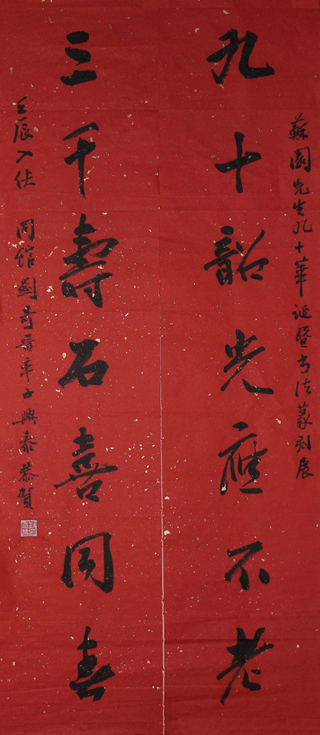 蘇園先生九十華誕暨书法篆刻展
九十韶光應不老
三千壽石喜同春
壬辰入伏 同館劉奇晉率子興泰恭賀